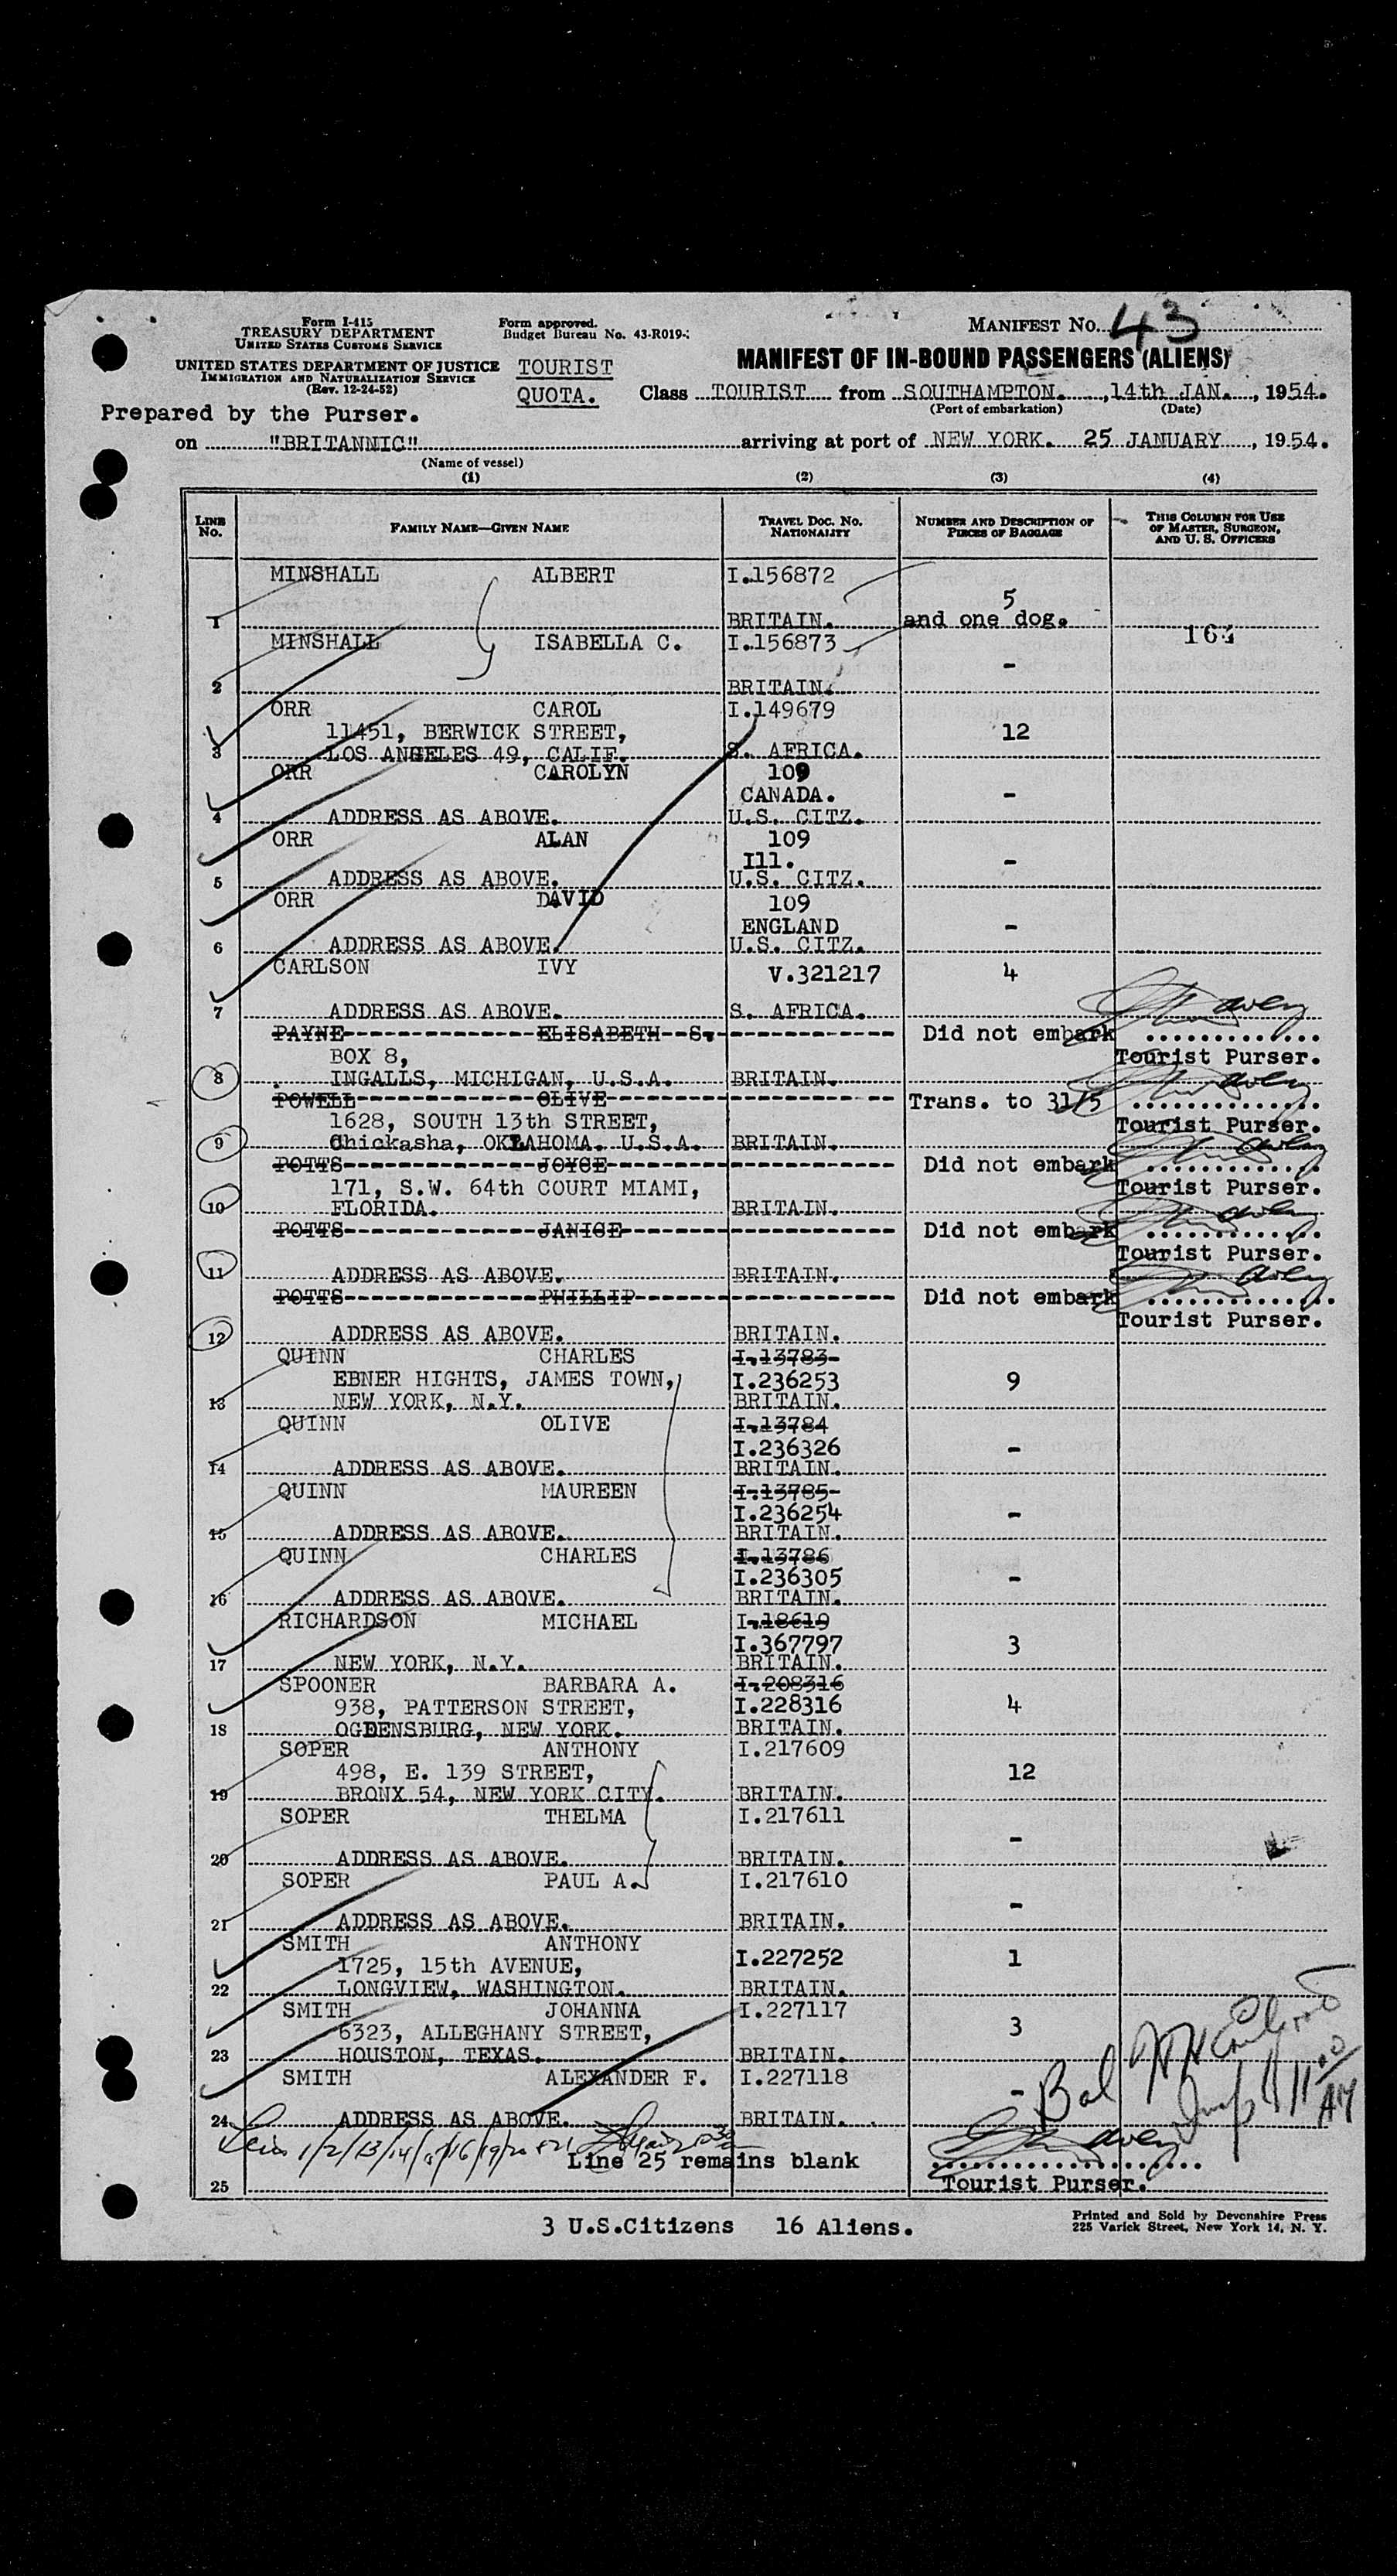 Form I-415
TREASURY DEPARTMENT
UNITED STATES CUSTOMS SERVICE
UNITED STATES DEPARTMENT OF JUSTICE
IMMIGRATION AND NATURALIZATION SERVICE
(Rev. 12-24-52)
Prepared by the Purser.
Form approved.
Budget Bureau No. 43-R019-
TOURIST
QUOTA.
MANIFEST NO. 43
MANIFEST OF IN-BOUND PASSENGERS (ALIENS)
Class TOURIST from SOUTHAMPTON. , 14th JAN. , 1954.
(Port of embarkation) (Date)
on "BRITANNIC" arriving at port of NEW YORK. 25 JANUARY , 1954.
(Name of vessel)
(1) (2) (3) (4)
LINE NO. FAMILY NAME—GIVEN NAME TRAVEL DOC. NO. NATIONALITY NUMBER AND DESCRIPTION OF PIECES OF BAGGAGE THIS COLUMN FOR USE OF MASTER, SURGEON, AND U. S. OFFICERS
MINSHALL ALBERT I.156872
5
1 BRITAIN. and one dog.
MINSHALL ISABELLA C. I.156873 164
-
2 BRITAIN.
ORR CAROL I.149679
11451, BERWICK STREET, 12
3 LOS ANGELES 49, CALIF. S. AFRICA.
ORR CAROLYN 109
CANADA. -
4 ADDRESS AS ABOVE. U.S. CITZ.
ORR ALAN 109
Ill. -
5 ADDRESS AS ABOVE. U.S. CITZ.
ORR DAVID 109
ENGLAND -
6 ADDRESS AS ABOVE. U.S. CITZ.
CARLSON IVY V.321217 4
7 ADDRESS AS ABOVE. S. AFRICA.
PAYNE ELISABETH S. Did not embark
BOX 8, Tourist Purser.
8 INGALLS, MICHIGAN, U.S.A. BRITAIN.
POWELL OLIVE Trans. to 31/5
1628, SOUTH 13th STREET, Tourist Purser.
9 Chickasha, OKLAHOMA. U.S.A. BRITAIN.
POTTS JOYCE Did not embark
171, S.W. 64th COURT MIAMI, Tourist Purser.
10 FLORIDA. BRITAIN.
POTTS JANICE Did not embark
Tourist Purser.
11 ADDRESS AS ABOVE. BRITAIN.
POTTS PHILLIP Did not embark
Tourist Purser.
12 ADDRESS AS ABOVE. BRITAIN.
QUINN CHARLES I.13783
EBNER HIGHTS, JAMES TOWN, I.236253 9
13 NEW YORK, N.Y. BRITAIN.
QUINN OLIVE I.13784
I.236326 -
14 ADDRESS AS ABOVE. BRITAIN.
QUINN MAUREEN I.13785
I.236254 -
15 ADDRESS AS ABOVE. BRITAIN.
QUINN CHARLES I.13786
I.236305 -
16 ADDRESS AS ABOVE. BRITAIN.
RICHARDSON MICHAEL I.18619
I.367797 3
17 NEW YORK, N.Y. BRITAIN.
SPOONER BARBARA A. I.208316
938, PATTERSON STREET, I.228316 4
18 OGDENSBURG, NEW YORK. BRITAIN.
SOPER ANTHONY I.217609
498, E. 139 STREET, 12
19 BRONX 54, NEW YORK CITY. BRITAIN.
SOPER THELMA I.217611
-
20 ADDRESS AS ABOVE. BRITAIN.
SOPER PAUL A. I.217610
-
21 ADDRESS AS ABOVE. BRITAIN.
SMITH ANTHONY
1725, 15th AVENUE, I.227252 1
22 LONGVIEW, WASHINGTON. BRITAIN.
SMITH JOHANNA I.227117
6323, ALLEGHANY STREET, 3
23 HOUSTON, TEXAS. BRITAIN.
SMITH ALEXANDER F. I.227118
- Bal
24 ADDRESS AS ABOVE. BRITAIN.
1/2/13/14/15/16/19/20 & 21
Line 25 remains blank
25 Tourist Purser.
3 U.S.Citizens 16 Aliens.
Printed and Sold by Devonshire Press
225 Varick Street, New York 14, N. Y.